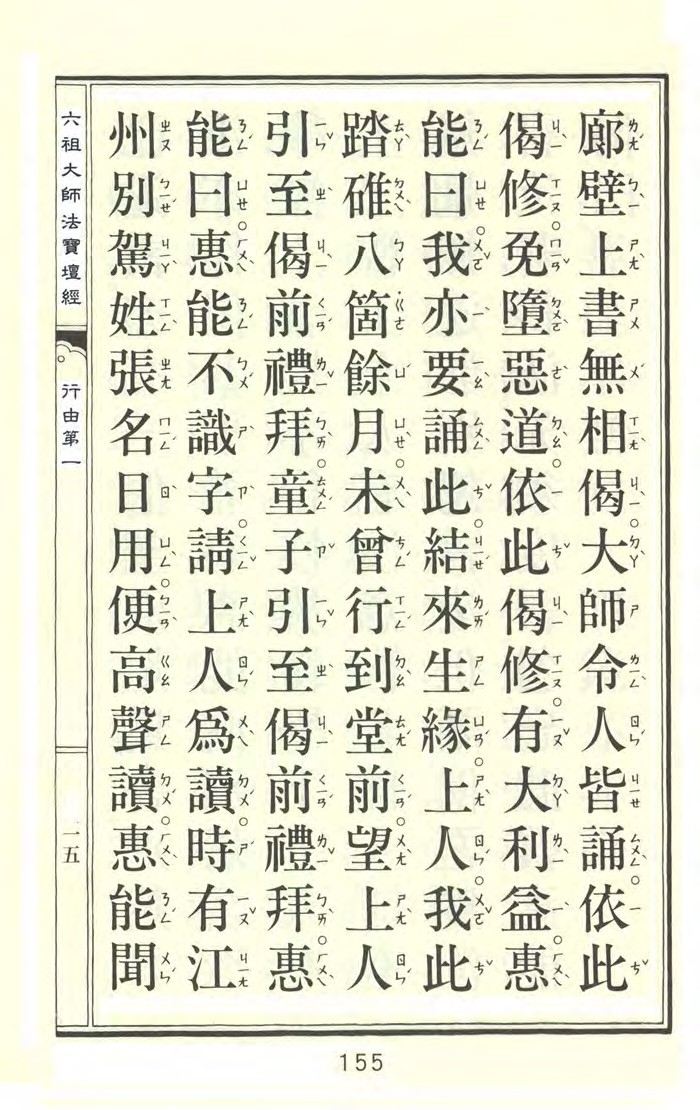 廊壁上書無相偈。大師令人皆誦。依此
偈修。免墮惡道。依此偈修。有大利益。惠
能曰。我亦要誦此。結來生緣。上人。我此
踏碓八箇餘月。未曾行到堂前。望上人
引至偈前禮拜。童子引至偈前禮拜。惠
能曰。惠能不識字。請上人爲讀。時有江
州別駕姓張名日用。便高聲讀。惠能聞
六祖大師法寶壇經
行由第一
一五
155